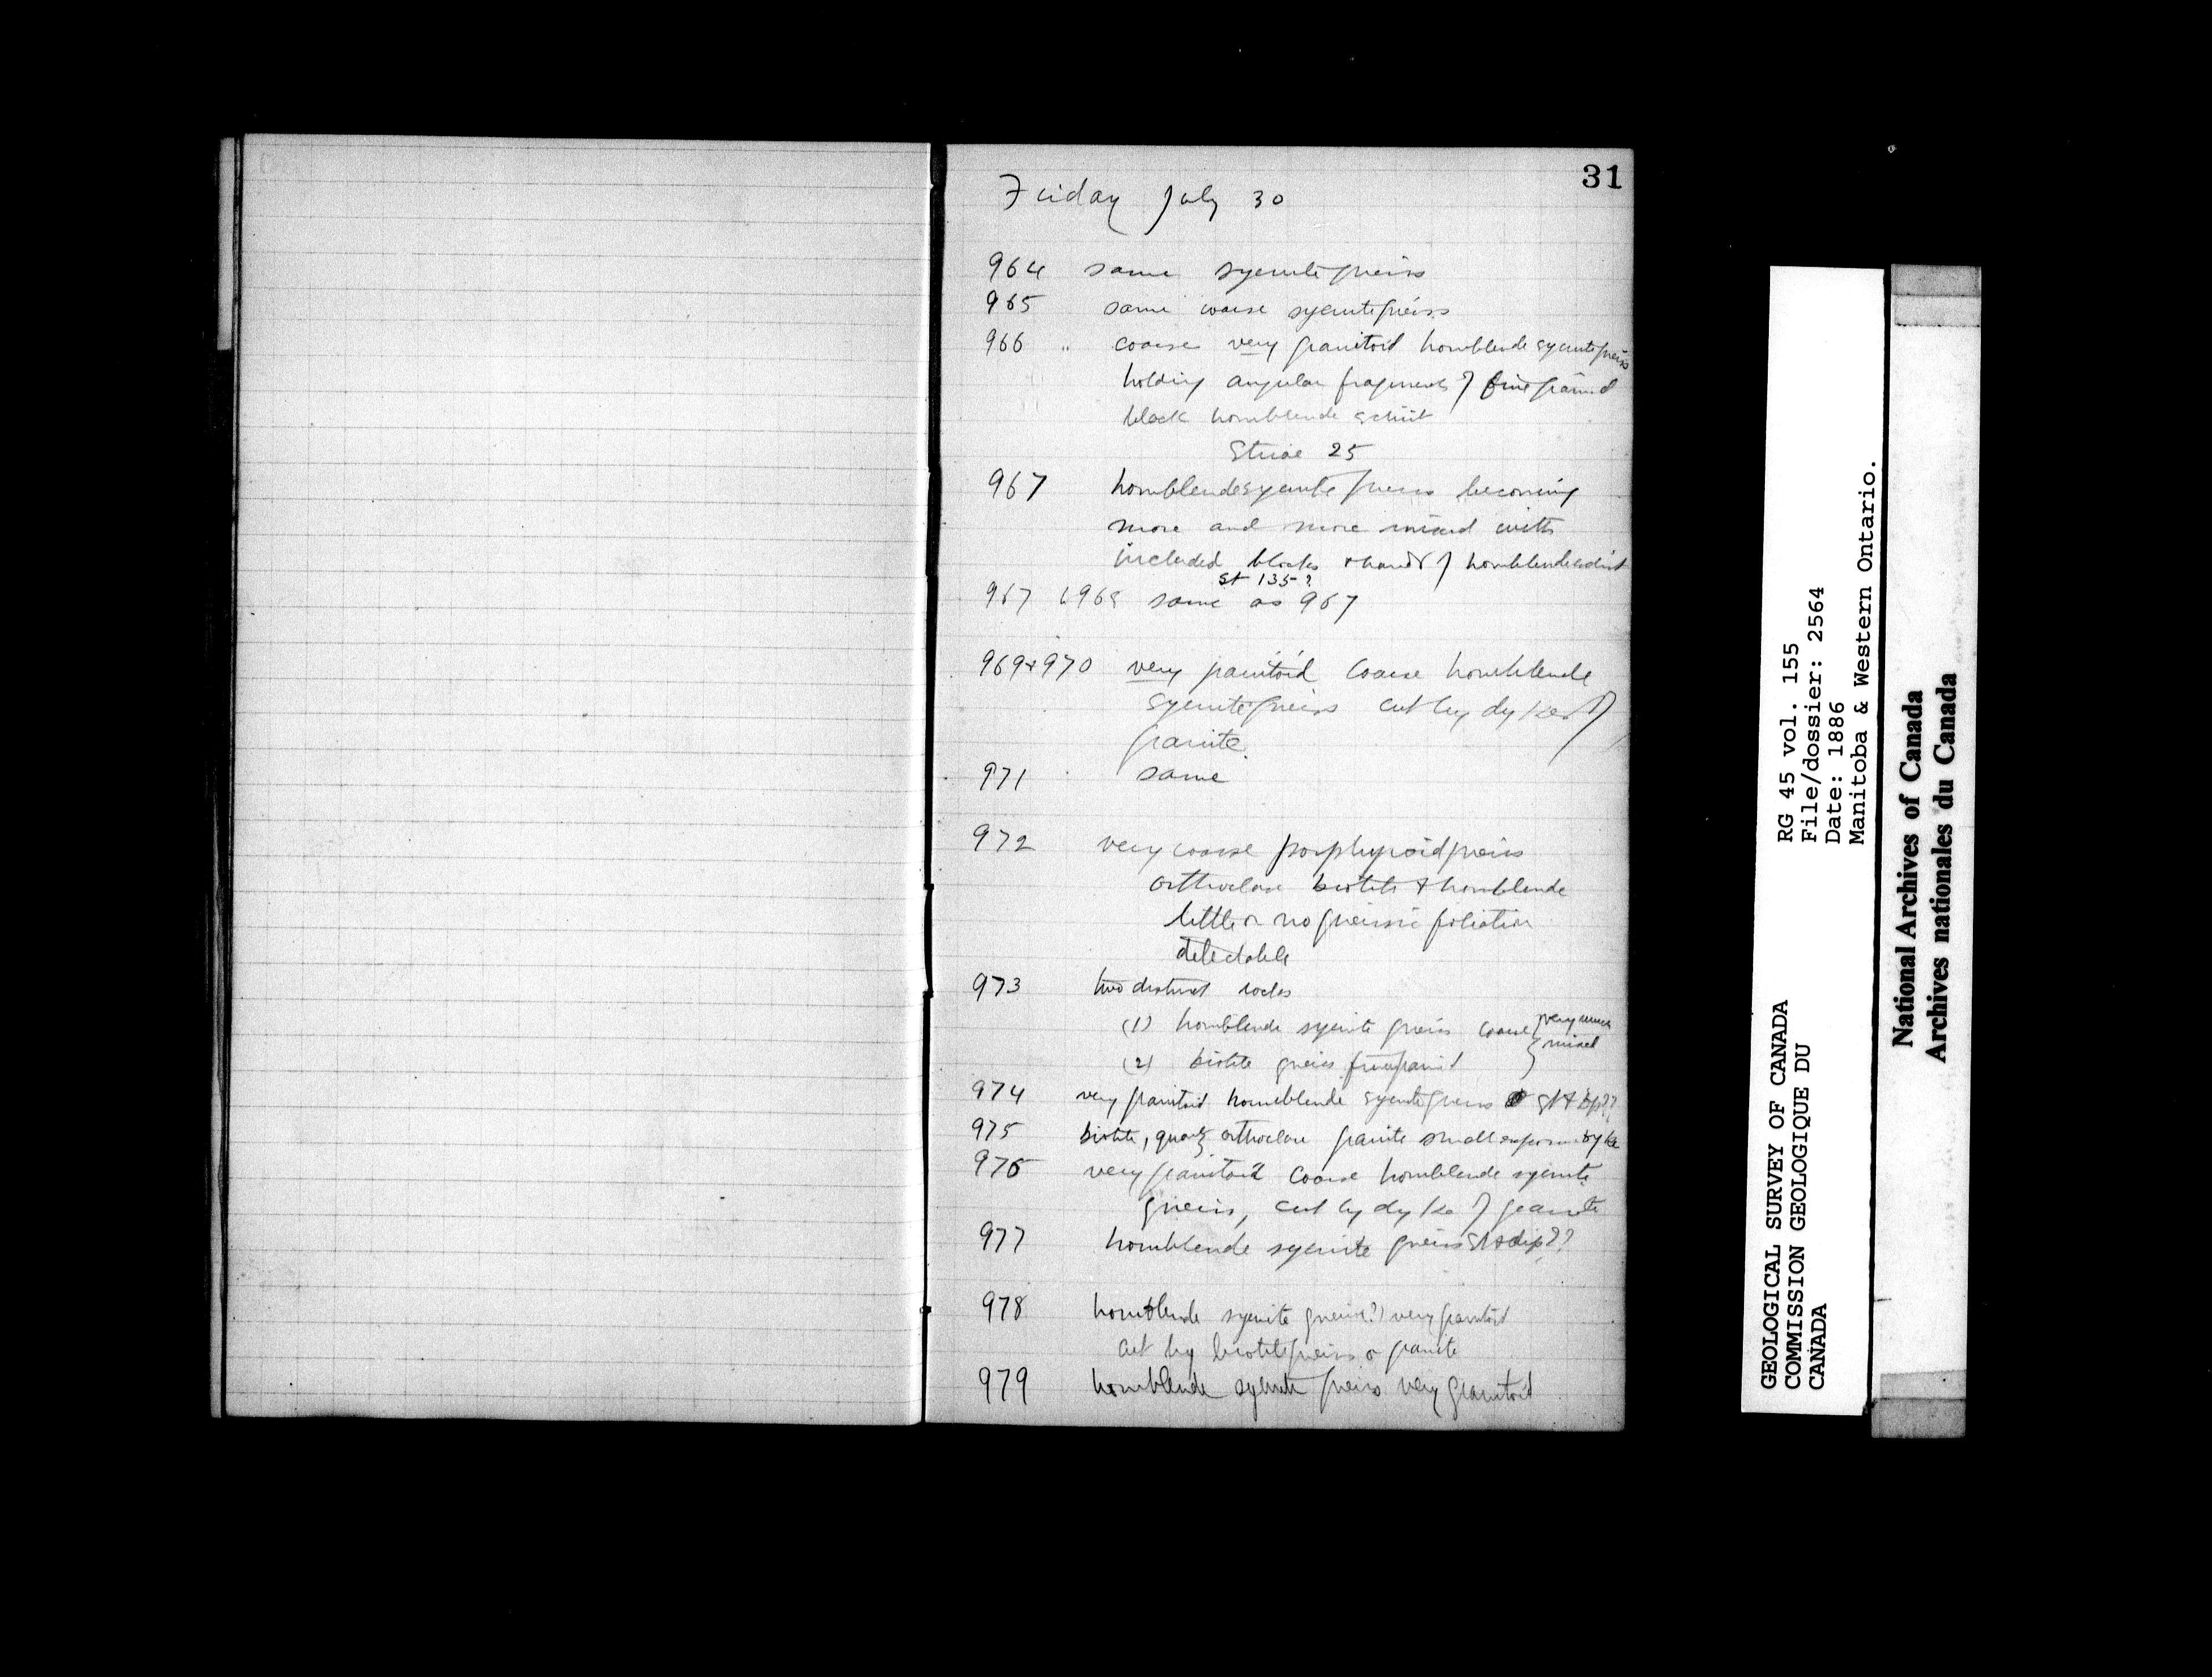 31
Friday July 30
964 same syenite gneiss
965 same coarse syenite gneiss
966 " coarse very granitoid hornblende syenite gneiss
holding angular fragments of fine grained
black hornblende schist
Striae 25
967 hornblende syenite gneiss becoming
more and more mixed with
included blocks & bands of hornblende schist
St 135?
967 6968 same as 967
969 & 970 very granitoid coarse hornblende
syenite gneiss cut by dykes of
granite
971 same
972 very coarse porphyroid gneiss
orthoclase biotite & hornblende
little or no gneissic foliation
detectable
973 two distinct rocks
(1) hornblende syenite gneiss coarse } very much
(2) biotite gneiss fine grained } mixed
974 very granitoid hornblende syenite gneiss St & dip??
975 biotite, quartz orthoclase granite small exposure dyke
976 very granitoid coarse hornblende syenite
gneiss, cut by dyke of granite
977 hornblende syenite gneiss St & dip??
978 hornblende syenite gneiss(?) very granitoid
cut by biotite gneiss or granite
979 hornblende syenite gneiss very granitoid
GEOLOGICAL SURVEY OF CANADA
COMMISSION GEOLOGIQUE DU
CANADA
RG 45 vol. 155
File/dossier: 2564
Date: 1886
Manitoba & Western Ontario.
National Archives of Canada
Archives nationales du Canada